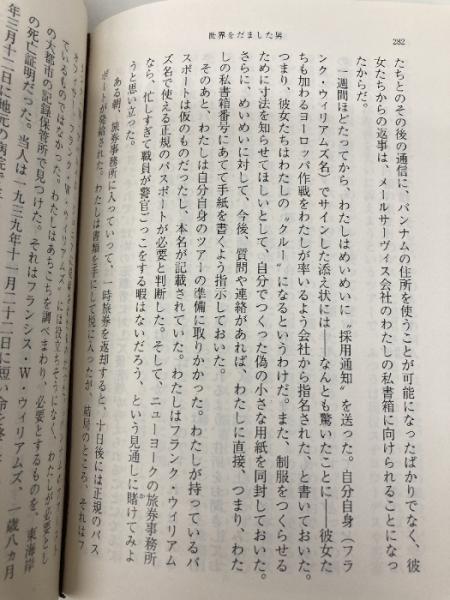 282
世界をだました男
たちとのその後の通信に、パンナムの住所を使うことが可能になったばかりでなく、彼
女たちからの返事は、メールサーヴィス会社のわたしの私書箱に向けられることになっ
たからだ。
一週間ほどたってから、わたしはめいめいに〝採用通知〟を送った。自分自身（フラ
ンク・ウィリアムズ名）でサインした添え状には――なんとも驚いたことに――彼女た
ちも加わるヨーロッパ作戦をわたしが率いるよう会社から指名された、と書いておいた。
つまり、彼女たちはわたしの〝クルー〟になるというわけだ。また、制服をつくらせる
ために寸法を知らせてほしいとして、自分でつくった偽の小さな用紙を同封しておいた。
さらに、めいめいに対して、今後、質問や連絡があれば、わたしに直接、つまり、わた
しの私書箱番号にあてて手紙を書くよう指示しておいた。
そのあと、わたしは自分自身のツアーの準備に取りかかった。わたしが持っているパ
スポートは仮のものだったし、本名が記載されていた。わたしはフランク・ウィリアム
ズ名で使える正規のパスポートが必要と判断した。そして、ニューヨークの旅券事務所
なら、忙しすぎて職員が警官ごっこをする暇はないだろう、という見通しに賭けてみよ
うと思い立った。
ある朝、旅券事務所に入っていって、一時旅券を返却すると、十日後には正規のパス
ポートが発給された。わたしは書類を手にして悦に入ったが、結局のところ、それはフ
ランク・W・ウィリアムズ
ているものではなかった。わたしはあちこちを調べまわり、必要とするものを、東海岸
の大都市の記録保管所で見つけた。それはフランシス・W・ウィリアムズ、一歳八カ月
の死亡証明だった。当人は一九三九年十一月二十二日に
年三月十二日に地元の病院で